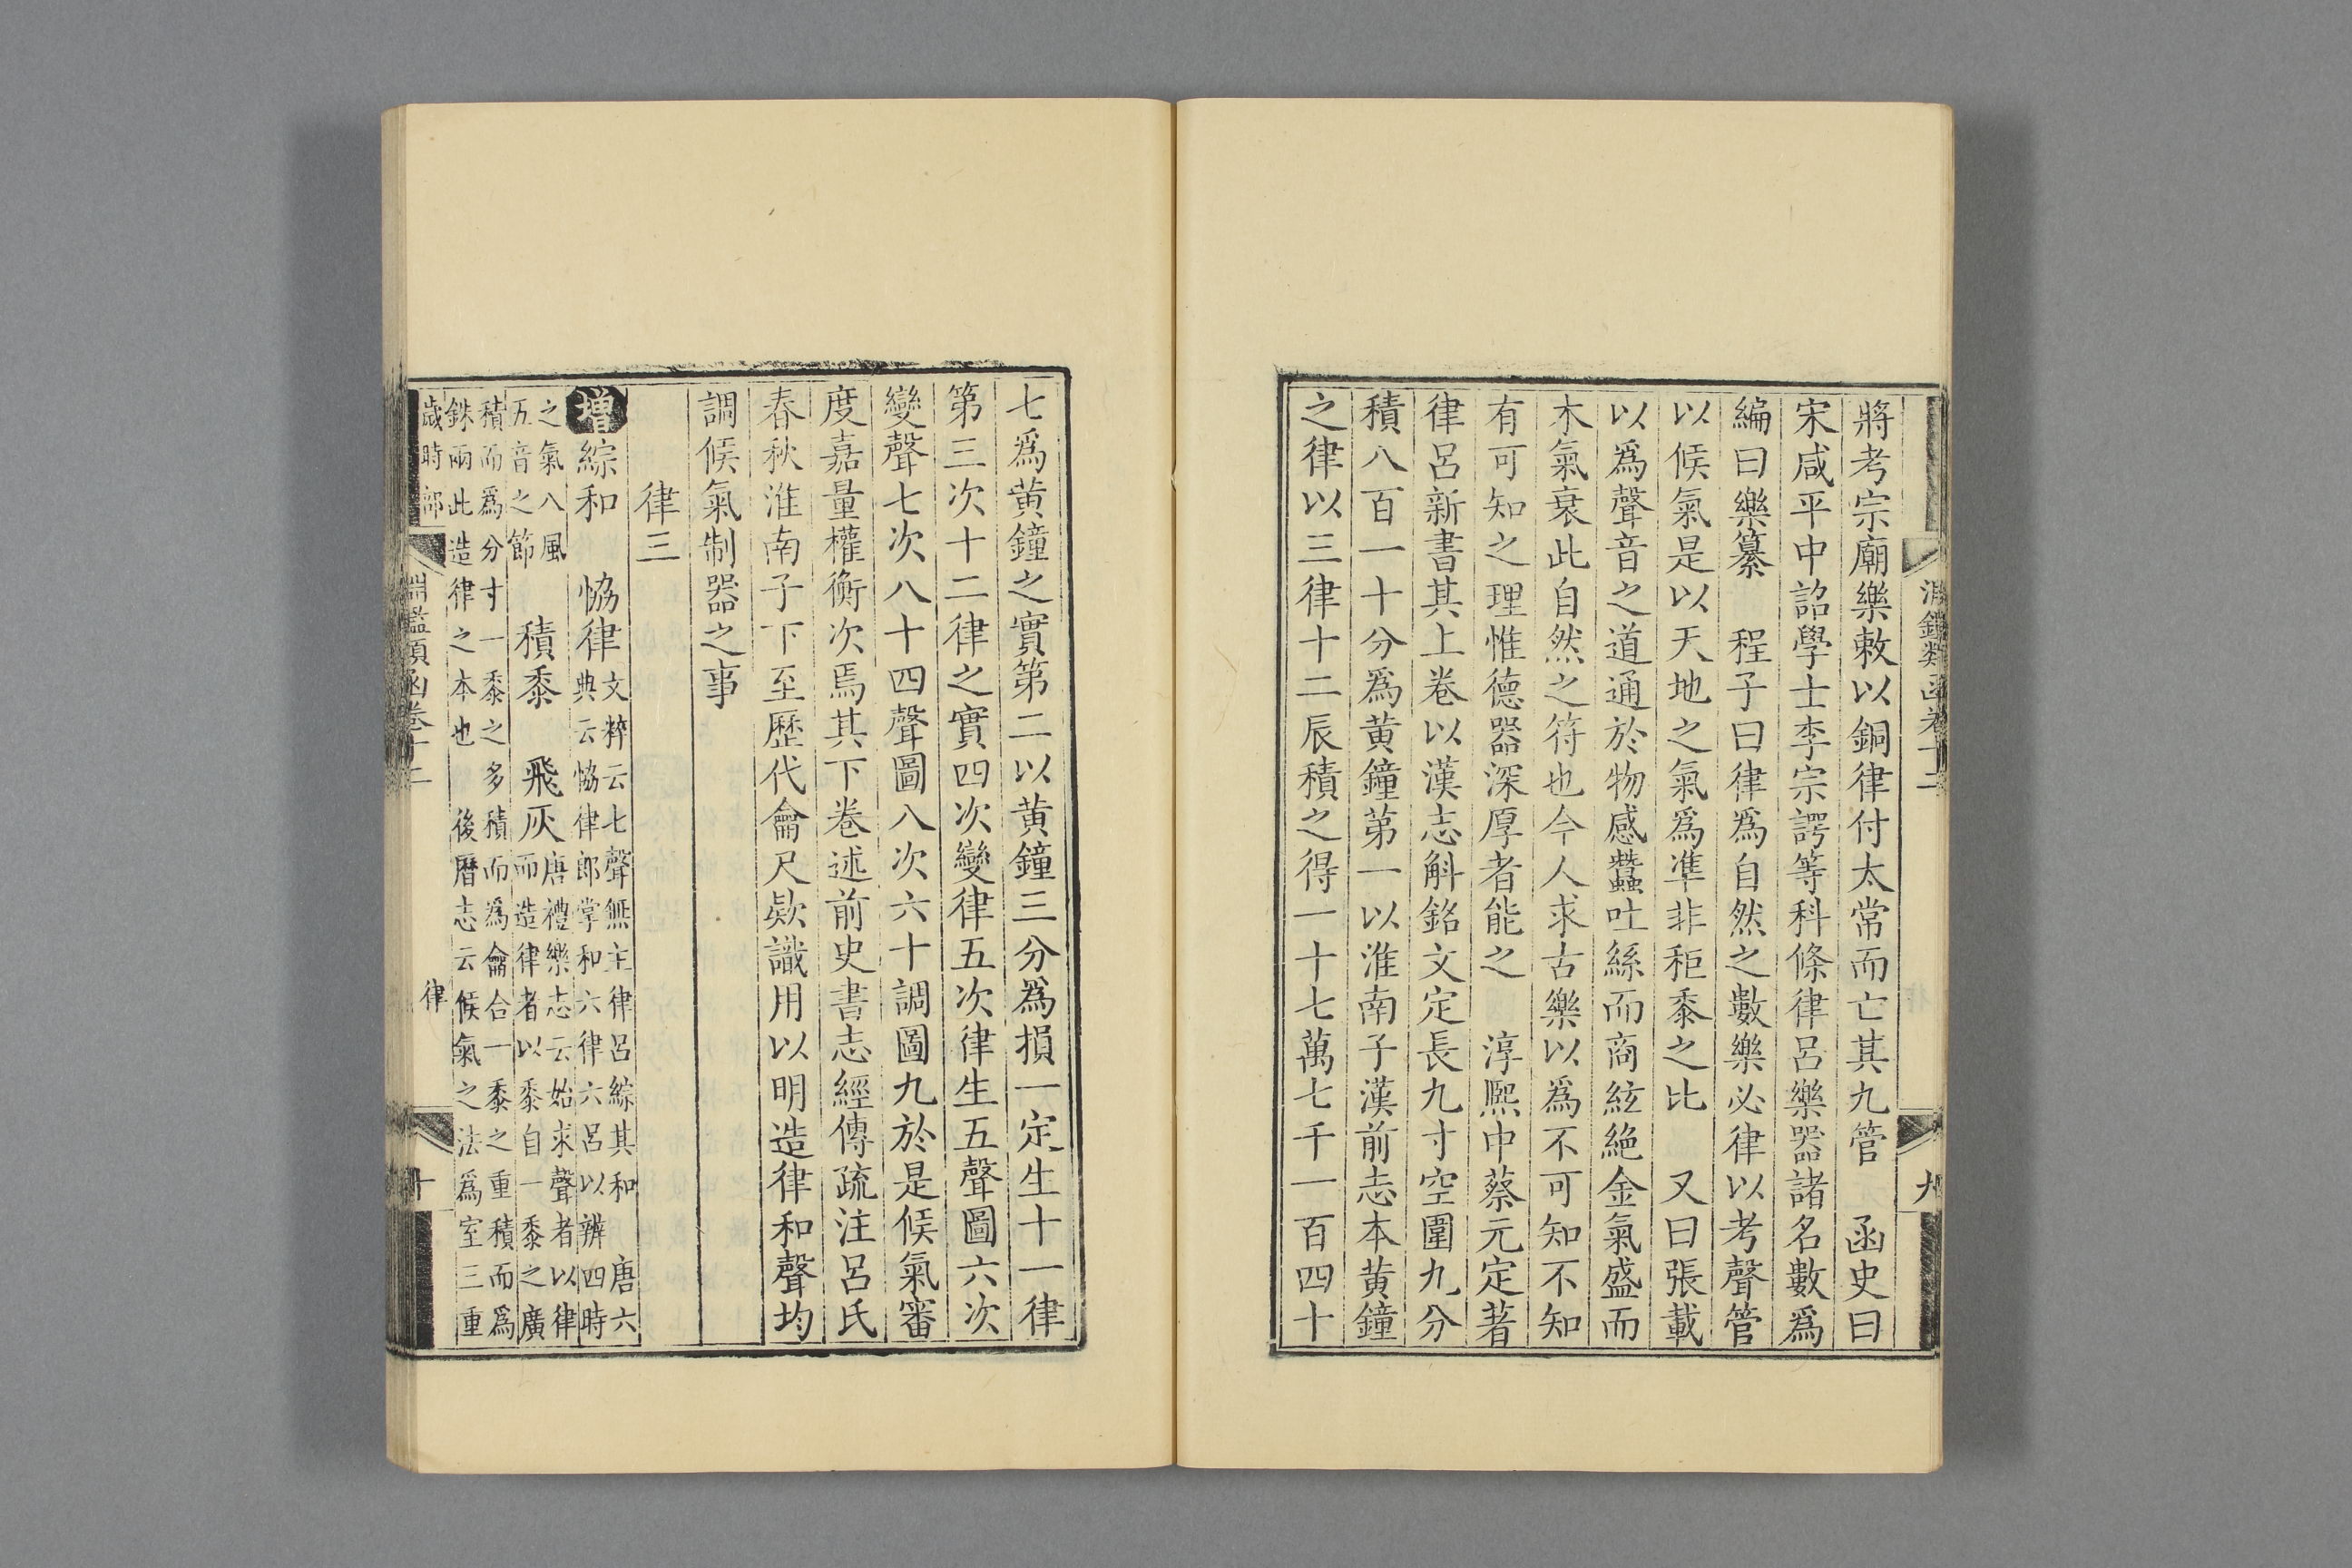 淵鑑類函卷十二
九
將考宗廟樂敕以銅律付太常而亡其九管　函史曰
宋咸平中詔學士李宗諤等科條律呂樂器諸名數爲
編曰樂纂　程子曰律爲自然之數樂必律以考聲管
以候氣是以天地之氣爲準非秬黍之比　又曰張載
以爲聲音之道通於物感蠶吐絲而商絃絕金氣盛而
木氣衰此自然之符也今人求古樂以爲不可知不知
有可知之理惟德器深厚者能之　淳熙中蔡元定著
律呂新書其上卷以漢志斛銘文定長九寸空圍九分
積八百一十分爲黃鐘第一以淮南子漢前志本黃鐘
之律以三律十二辰積之得一十七萬七千一百四十
七爲黃鐘之實第二以黃鐘三分爲損一定生十一律
第三次十二律之實四次變律五次律生五聲圖六次
變聲七次八十四聲圖八次六十調圖九於是候氣審
度嘉量權衡次焉其下卷述前史書志經傳疏注呂氏
春秋淮南子下至歷代龠尺欵識用以明造律和聲均
調候氣制器之事
律三
增　綜和　協律　文粹云七聲無主律呂綜其和　唐六
典云協律郎掌和六律六呂以辨四時
之氣八風
五音之節　積黍　飛灰　唐禮樂志云始求聲者以律
而造律者以黍自一黍之廣
積而爲分寸一黍之多積而爲龠合一黍之重積而爲
銖兩此造律之本也　後曆志云候氣之法爲室三重
歲時部
淵鑑類函卷十二
律
十